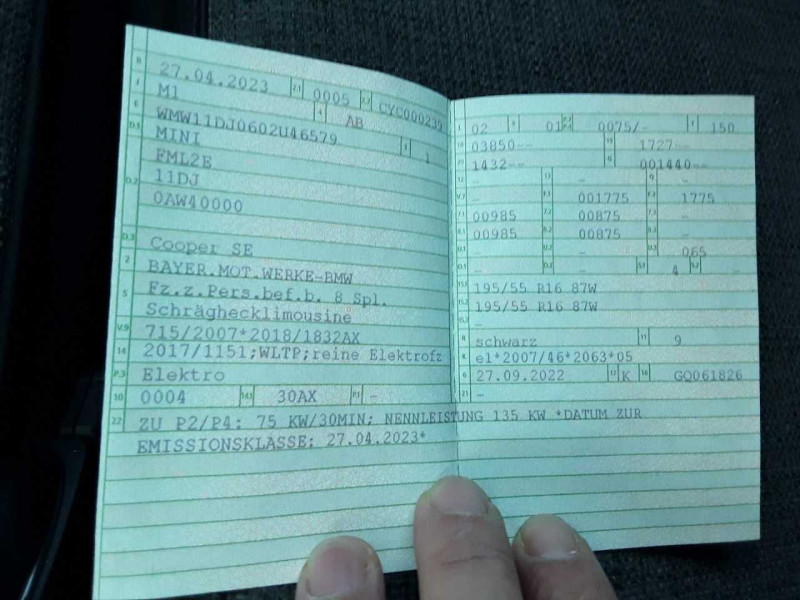 B 27.04.2023 2.1 0005 2.2 CYC000239
J M1 4 AB
E WMW11DJ0602U46579 3 1
D.1 MINI
D.2 FML2E
11DJ
0AW40000
D.3 Cooper SE
2 BAYER.MOT.WERKE-BMW
5 Fz.z.Pers.bef.b. 8 Spl.
Schräghecklimousine
V.9 715/2007*2018/1832AX
14 2017/1151;WLTP;reine Elektrofz
P.3 Elektro
10 0004 14.1 30AX P.1 -
L 02 9 01 P.2 P.4 0075/- T 150
18 03850-- 19 1727--
20 1432-- G 001440--
12 - 13 - Q -
V.7 - F.1 001775 F.2 1775
7.1 00985 7.2 00875 7.3 -
8.1 00985 8.2 00875 8.3 -
U.1 - U.2 - U.3 065
O.1 - O.2 - S.1 4 S.2 -
15.1 195/55 R16 87W
15.2 195/55 R16 87W
15.3 -
R schwarz 11 9
K e1*2007/46*2063*05
6 27.09.2022 17 K 16 GQ061826
21 -
22 ZU P2/P4: 75 KW/30MIN; NENNLEISTUNG 135 KW *DATUM ZUR
EMISSIONSKLASSE: 27.04.2023*